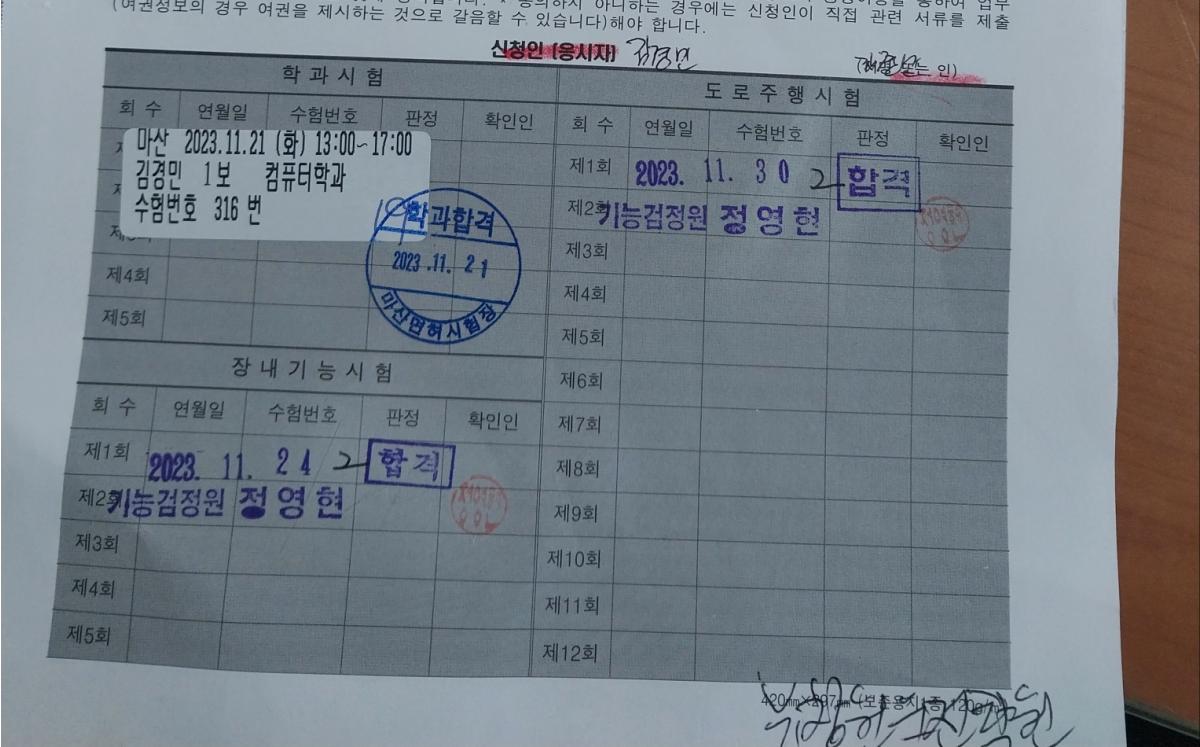 (여권정보의 경우 여권을 제시하는 것으로 갈음할 수 있습니다)해야 합니다.
동의하지 아니하는 경우에는 신청인이 직접 관련 서류를 제출
신청인 (응시자) 김경민
는 인)
학 과 시 험
회 수 연월일 수험번호 판정 확인인
마산 2023.11.21 (화) 13:00~17:00
김경민 1보 컴퓨터학과
수험번호 316 번
학과합격
2023.11. 21
마산면허시험장
제4회
제5회
장 내 기 능 시 험
회 수 연월일 수험번호 판정 확인인
제1회 2023. 11. 24 합격
제2 기능검정원 정영현
제3회
제4회
제5회
도 로 주 행 시 험
회 수 연월일 수험번호 판정 확인인
제1회 2023. 11. 30 합격
제2 기능검정원 정영현
제3회
제4회
제5회
제6회
제7회
제8회
제9회
제10회
제11회
제12회